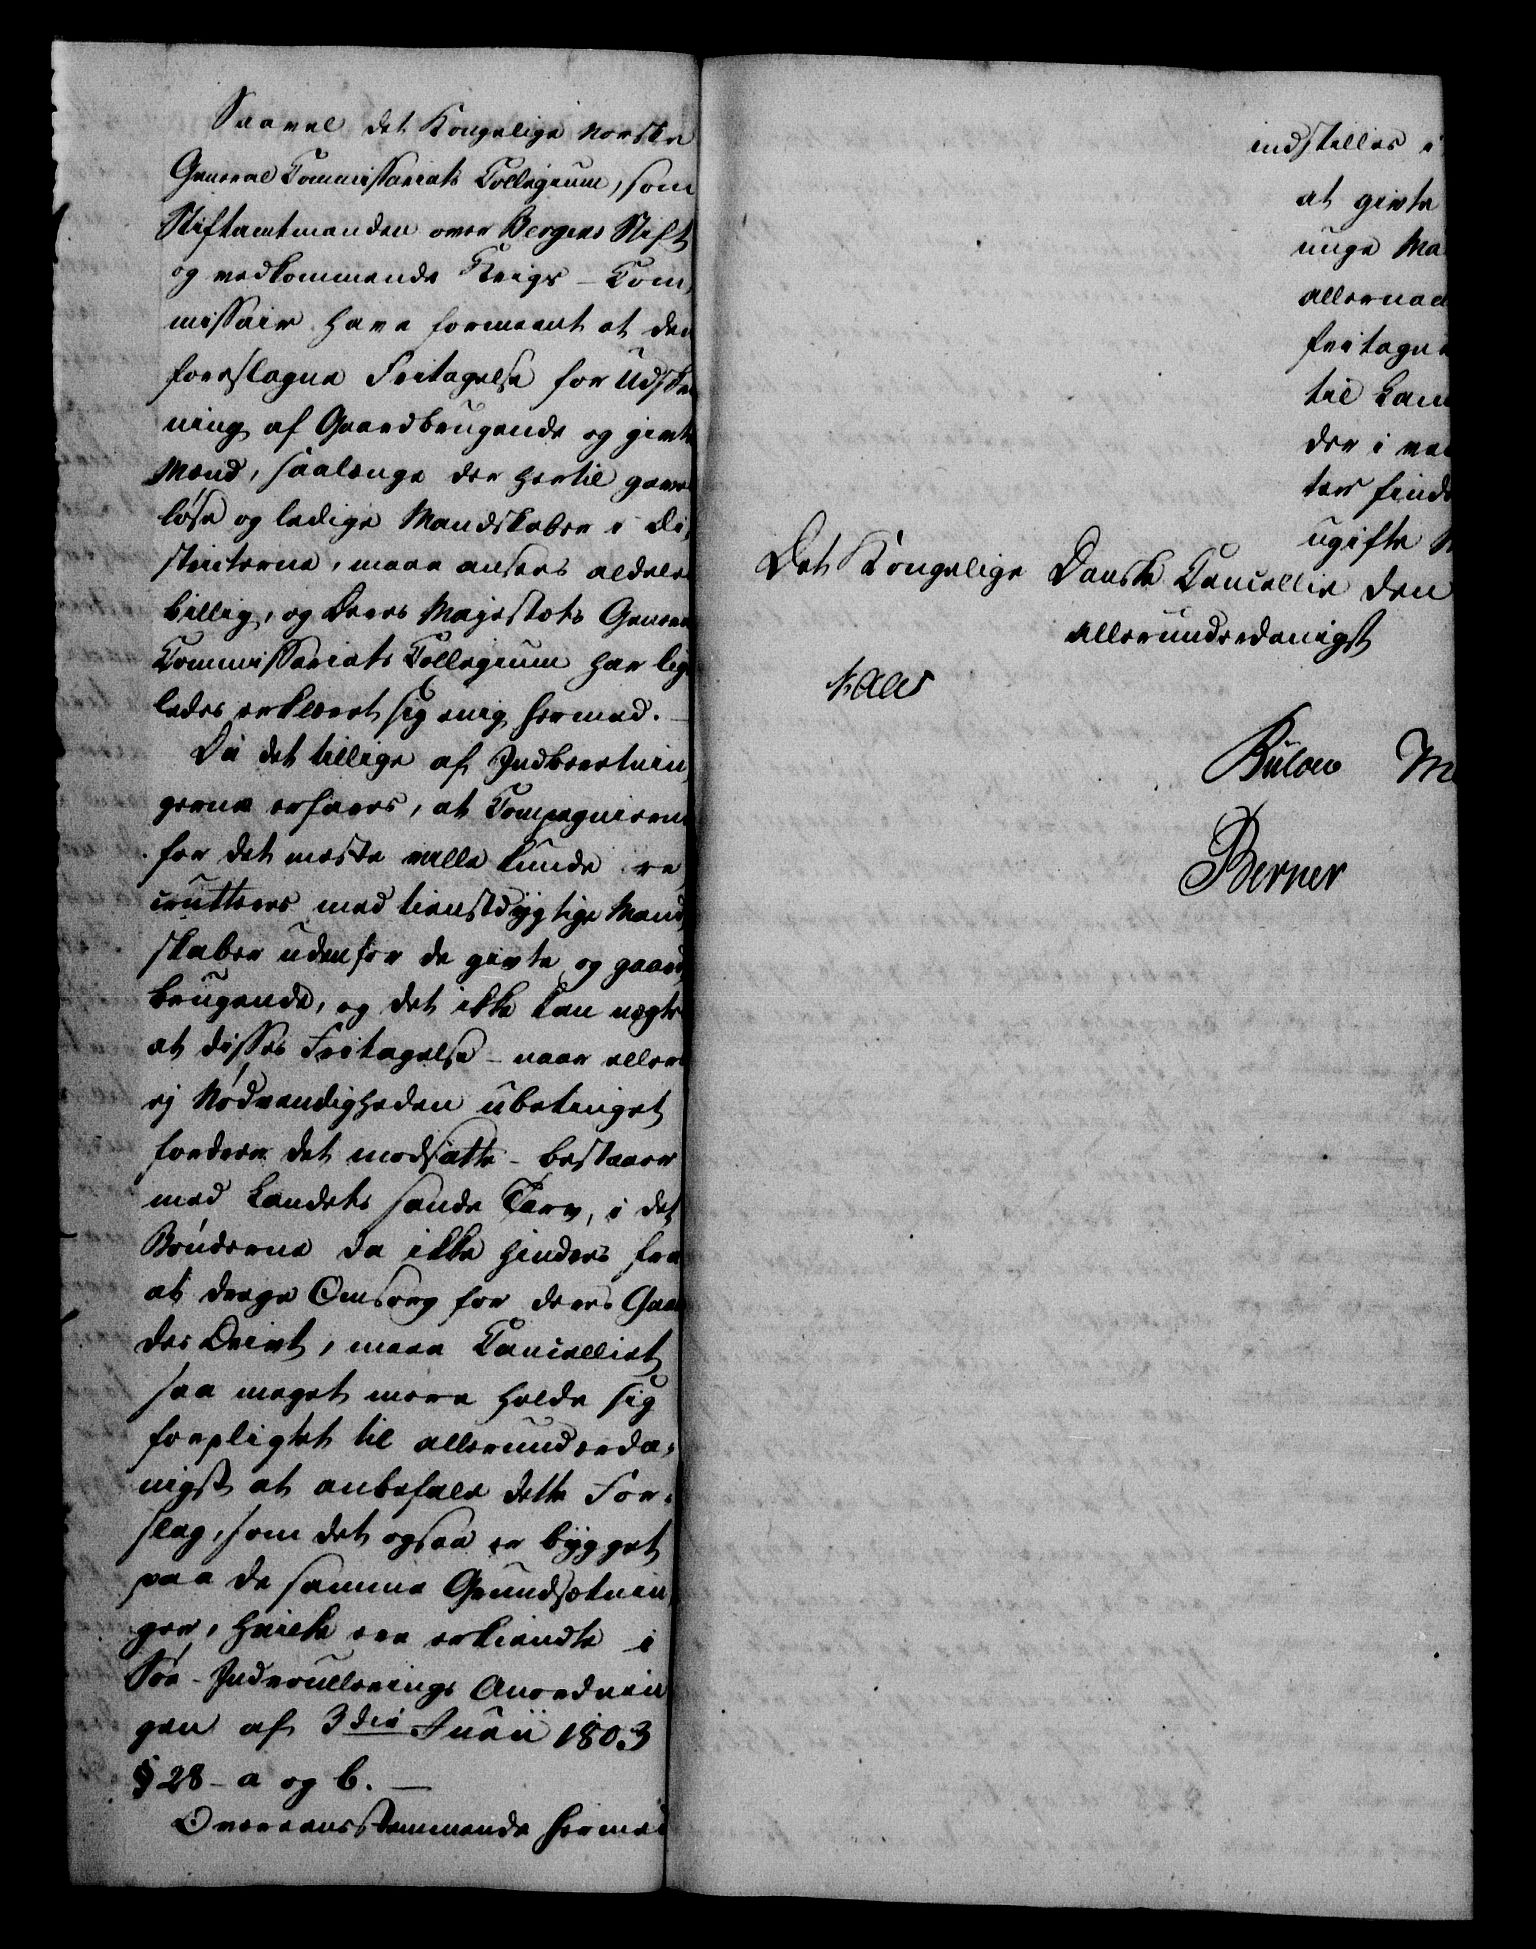 Saavel det Kongelige Norske
General Commissariats Collegium, som
Stiftamtmanden over Bergens Stift
og vedkommende Krigs-Com,
missair have formeent at den
foreslagne Fritagelse for Udskri
ning af Gaardbrugende og givte
Mænd, saalænge der hertil gives
løse og ledige Mandskaber i Di,
stricterne, maae ansees aldeles
billig, og Deres Majestæts General
Commissariats Collegium har lige
ledes erklæret sig enig hermed. –
Da det tillige af Indberetnin,
gerne erfares, at Compagnierne
for det meste vilde kunde re,
crutteres med tienstdygtige Mand,
skaber udenfor de givte og gaard,
brugende, og det ikke kan nægtes
at disses Fritagelse – naar ellers
ej Nødvendigheden ubetinget
fordrer det modsatte – bestaaer
med Landets sande Tarv, i det
Bønderne da ikke hindres fra
at drage Omsorg for deres Gaar
des Drivt, maae Cancelliet
saa meget mere holde sig
forpligtet til allerunderda=
nigst at anbefale dette For=
slag, som det ogsaa er bygget
paa de samme Grundsætnin,
ger, hvilke ere erkiendte i
Søe-Indroullerings Anordnin
gen af 3die Junii 1803
§ 28 – a og b. –
Overeensstemmende hermed
indstilles i
at givte
unge Ma
allernaa
fritagne
til Lan
der i ved
ter finde
ugifte M
Det Kongelige Danske Cancellie den
allerunderdanigst
Kaas
Bülow M
Berner